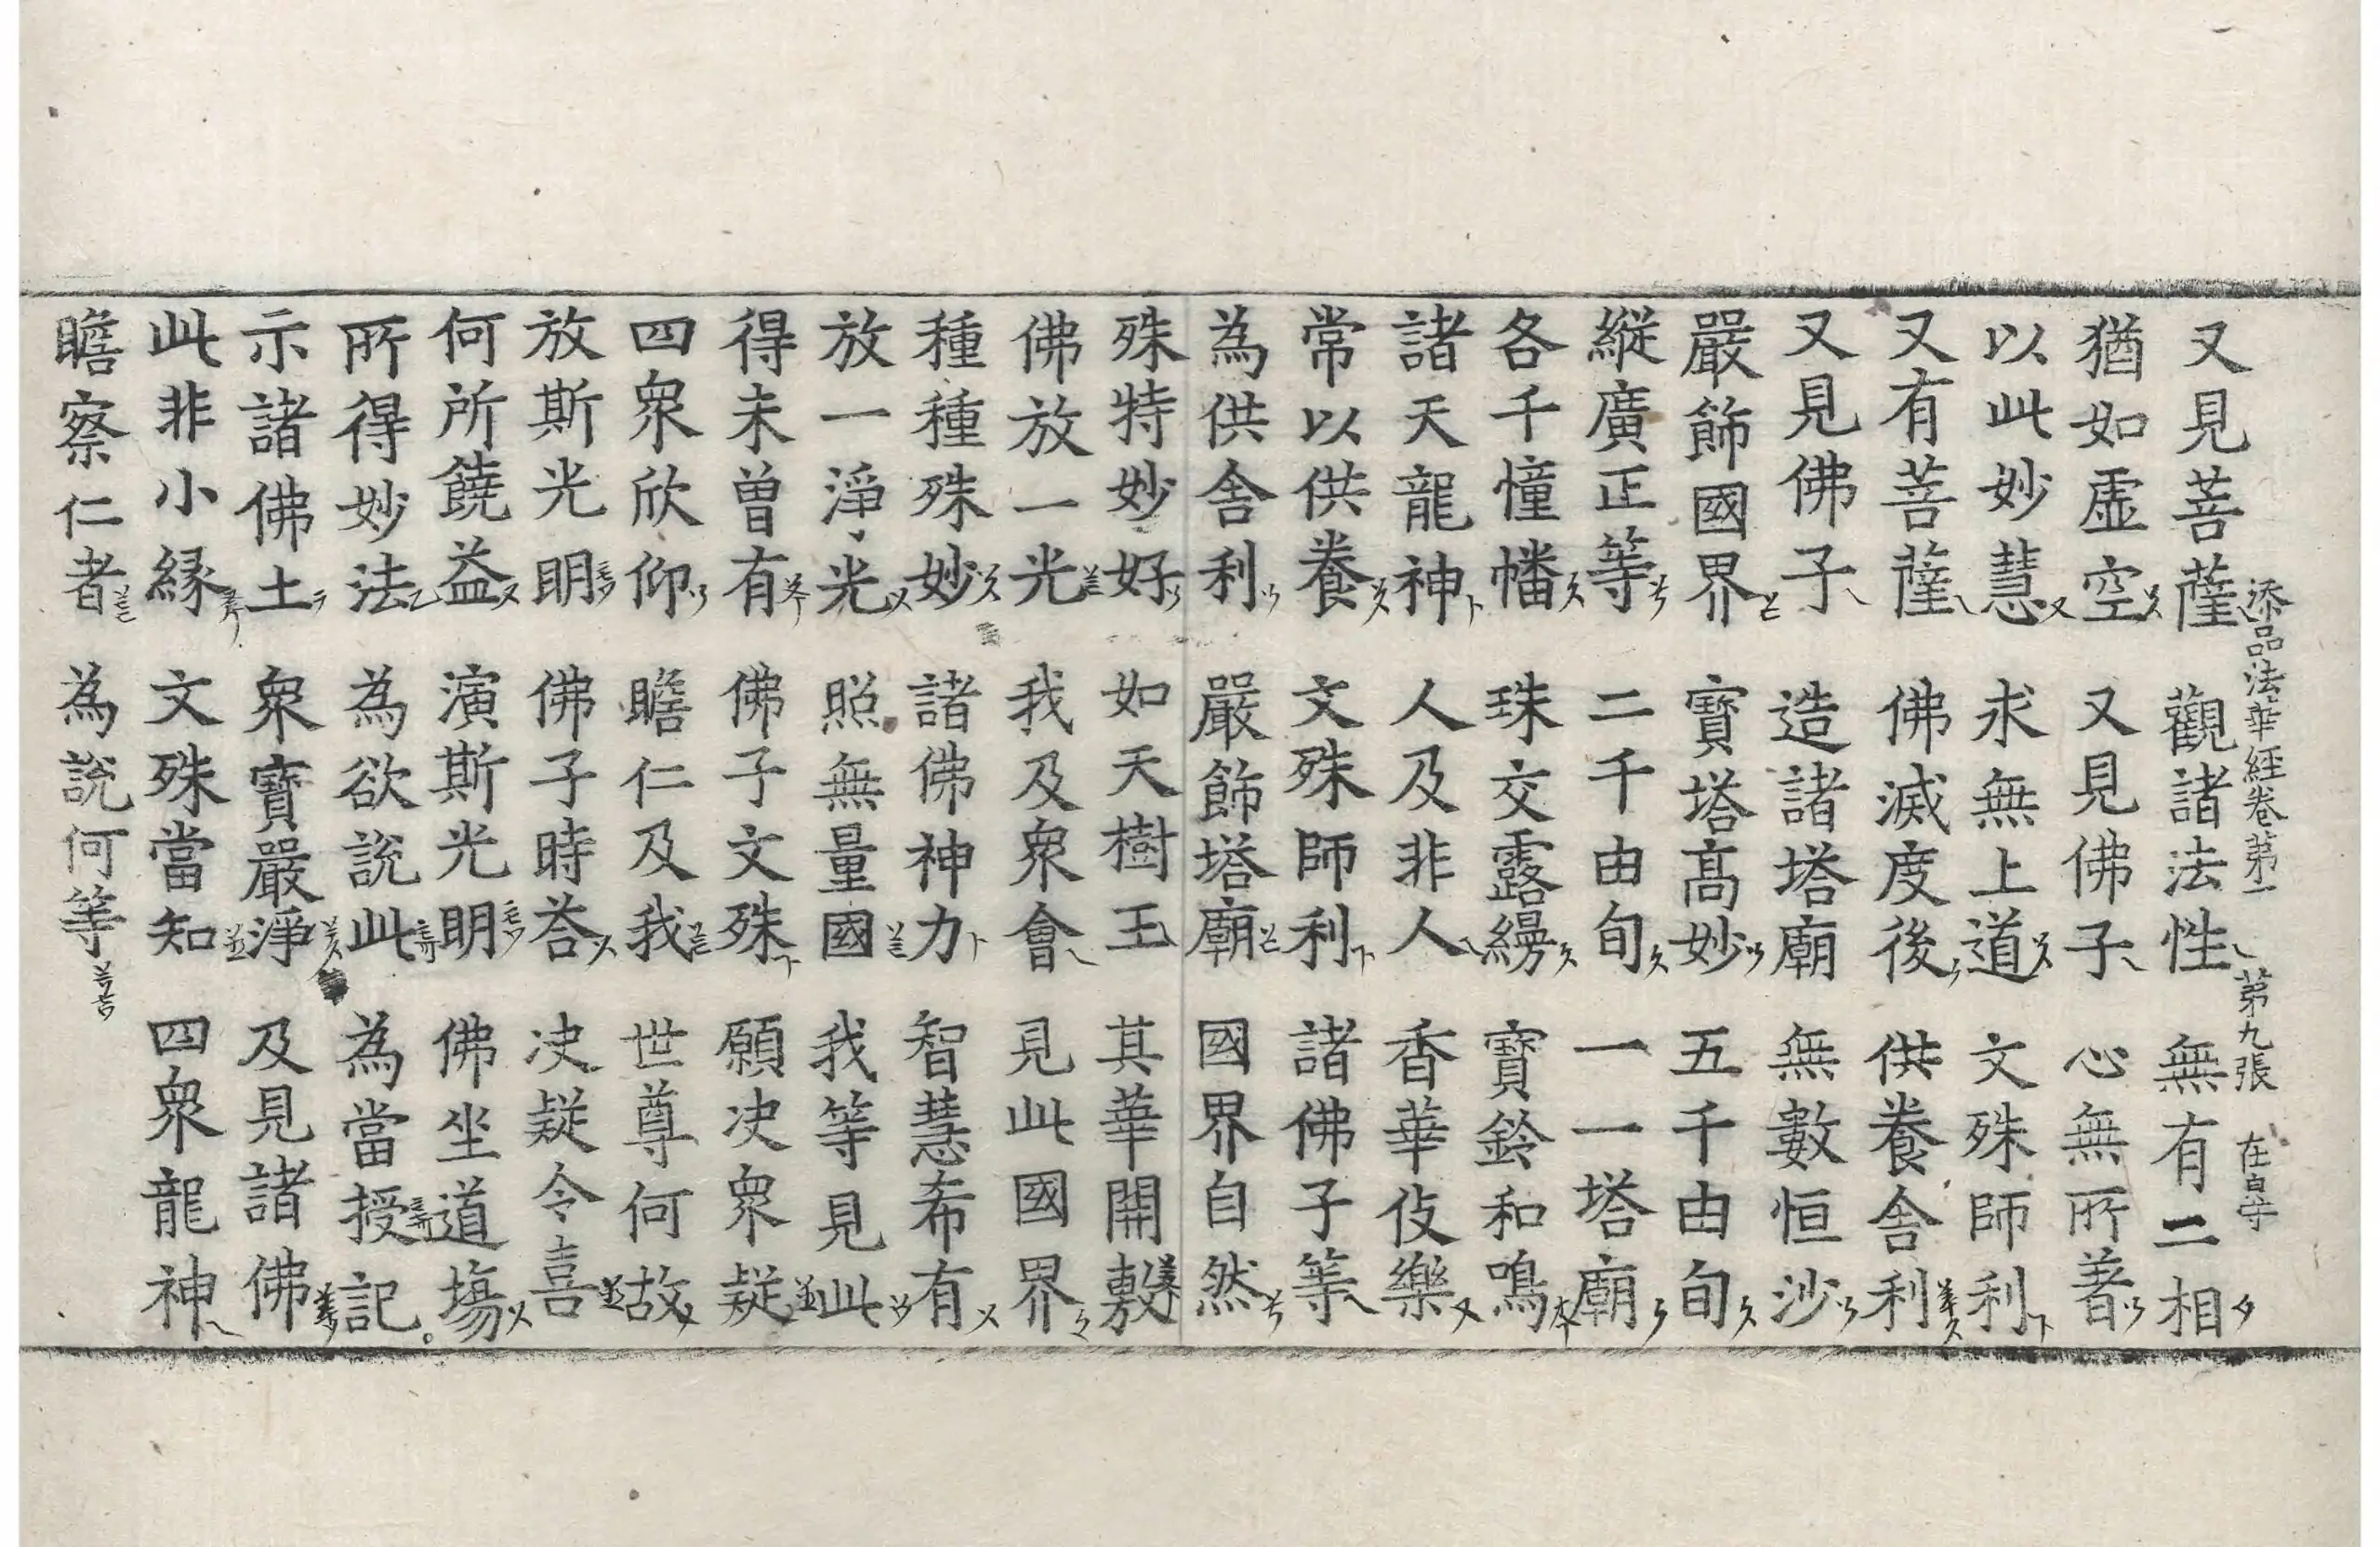 添品法華經卷第一 第九張 在
又見菩薩 觀諸法性 無有二相
猶如虛空 又見佛子 心無所著
以此妙慧 求無上道 文殊師利
又有菩薩 佛滅度後 供養舍利
又見佛子 造諸塔廟 無數恒沙
嚴飾國界 寶塔高妙 五千由旬
縱廣正等 二千由旬 一一塔廟
各千憧幡 珠交露縵 寶鈴和鳴
諸天龍神 人及非人 香華伎樂
常以供養 文殊師利 諸佛子等
為供舍利 嚴飾塔廟 國界自然
殊特妙好 如天樹王 其華開敷
佛放一光 我及眾會 見此國界
種種殊妙 諸佛神力 智慧希有
放一淨光 照無量國 我等見此
得未曾有 佛子文殊 願决眾疑
四眾欣仰 瞻仁及我 世尊何故
放斯光明 佛子時荅 决疑令喜
何所饒益 演斯光明 佛坐道場
所得妙法 為欲說此 為當授記
示諸佛土 眾寶嚴淨 及見諸佛
此非小緣 文殊當知 四眾龍神
瞻察仁者 為說何等